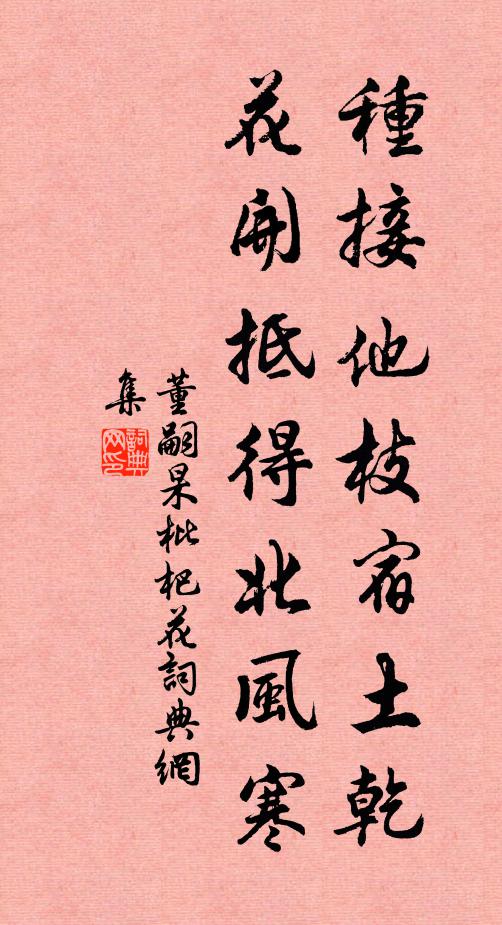 種接他枝宿土乾
花開抵得北風寒
董嗣杲枇杷花詞典網
集
詞典
网印